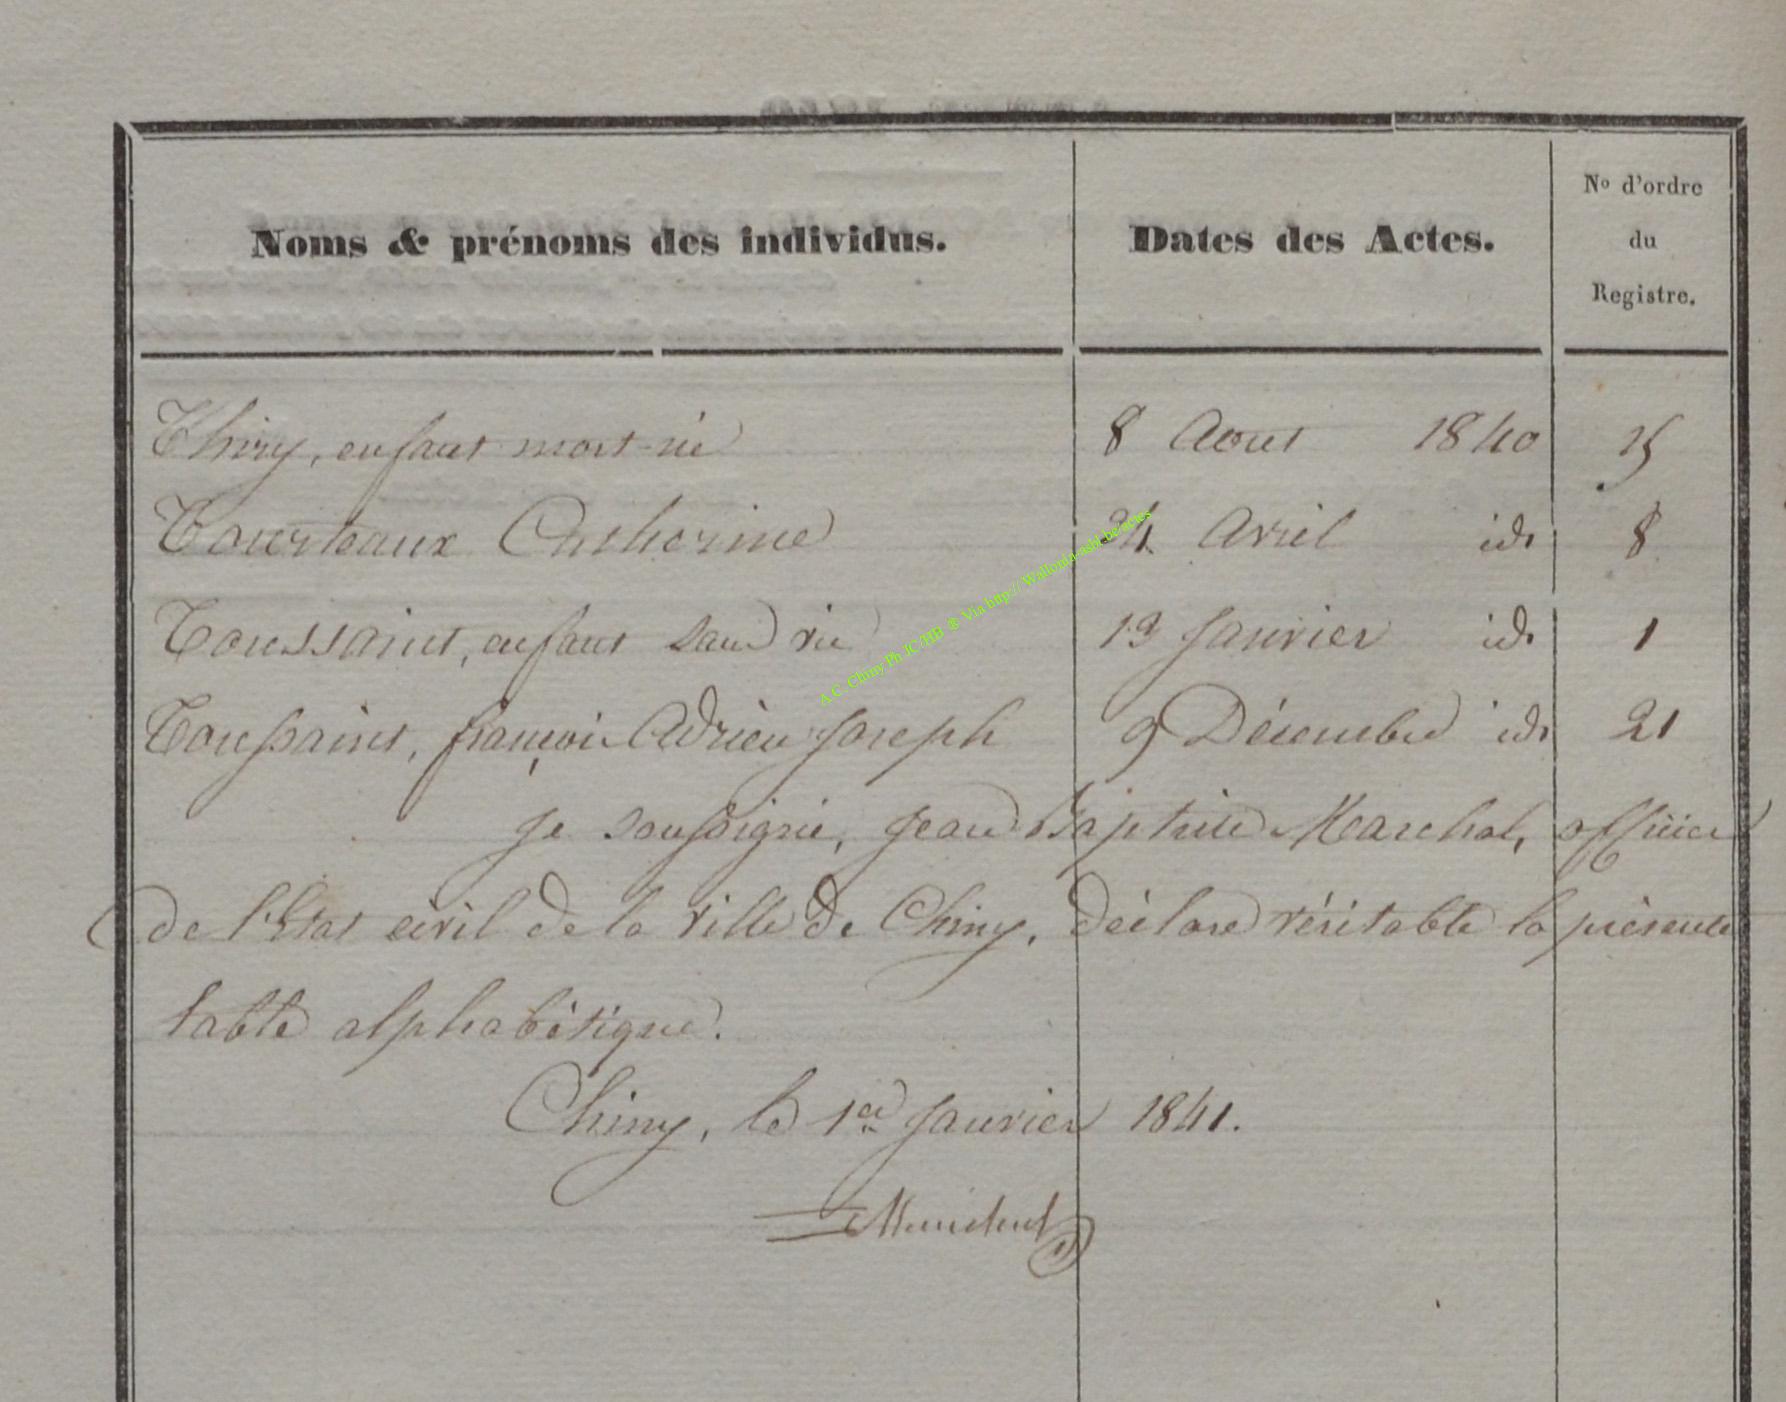 Noms & prénoms des individus. Dates des Actes. No d'ordre
du
Registre.
Thiry, enfant mort-né 8 Aout 1840 15
Tourteaux Catherine 24 Avril id. 8
Toussaint, enfant sans vie 13 Janvier id. 1
Toussaint, françois Adrien Joseph 9 Décembre id. 21
Je soussigné, Jean Baptiste Marchal, officier
de l'Etat civil de la ville de Chiny, déclare véritable la présente
table alphabétique.
Chiny, le 1er Janvier 1841.
Marchal
A.C. Chiny Ph JC/HB ® Via http:// Wallonia-asbl.be/actes